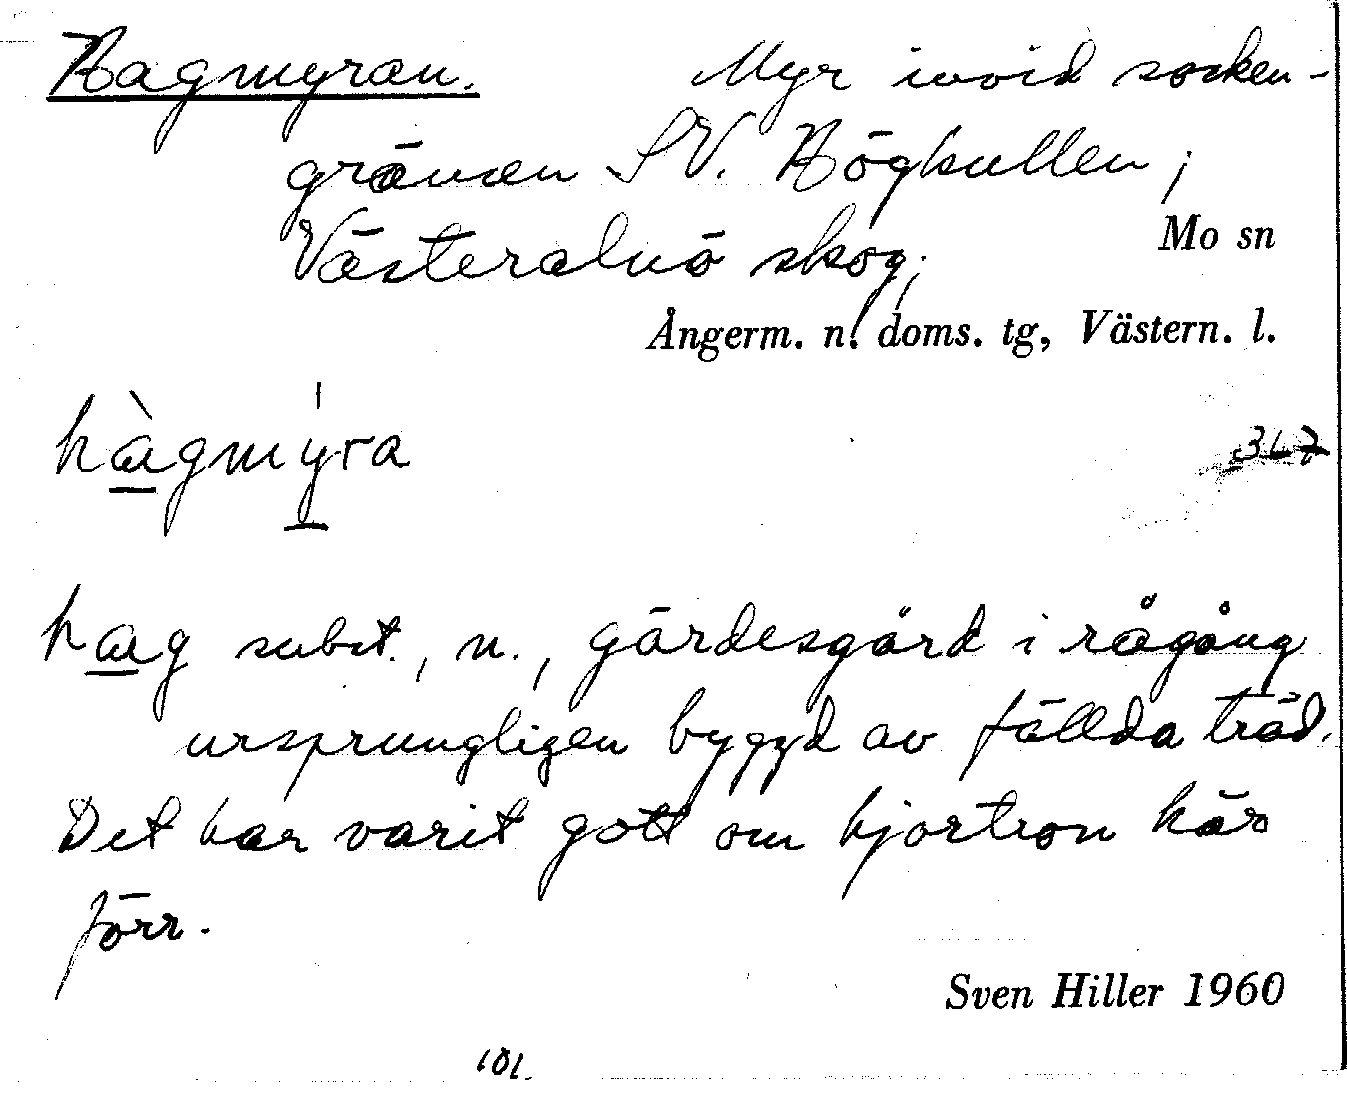 Hagmyran. Myr invid socken-
gränsen SV. Högkullen;
Västeralnö skog,
Mo sn
Ångerm. n. doms. tg, Västern. l.
hàgmýra
hag subst., n., gärdesgård i rågång
ursprungligen byggd av fällda träd.
Det har varit gott om hjortron här
förr.
Sven Hiller 1960
101.